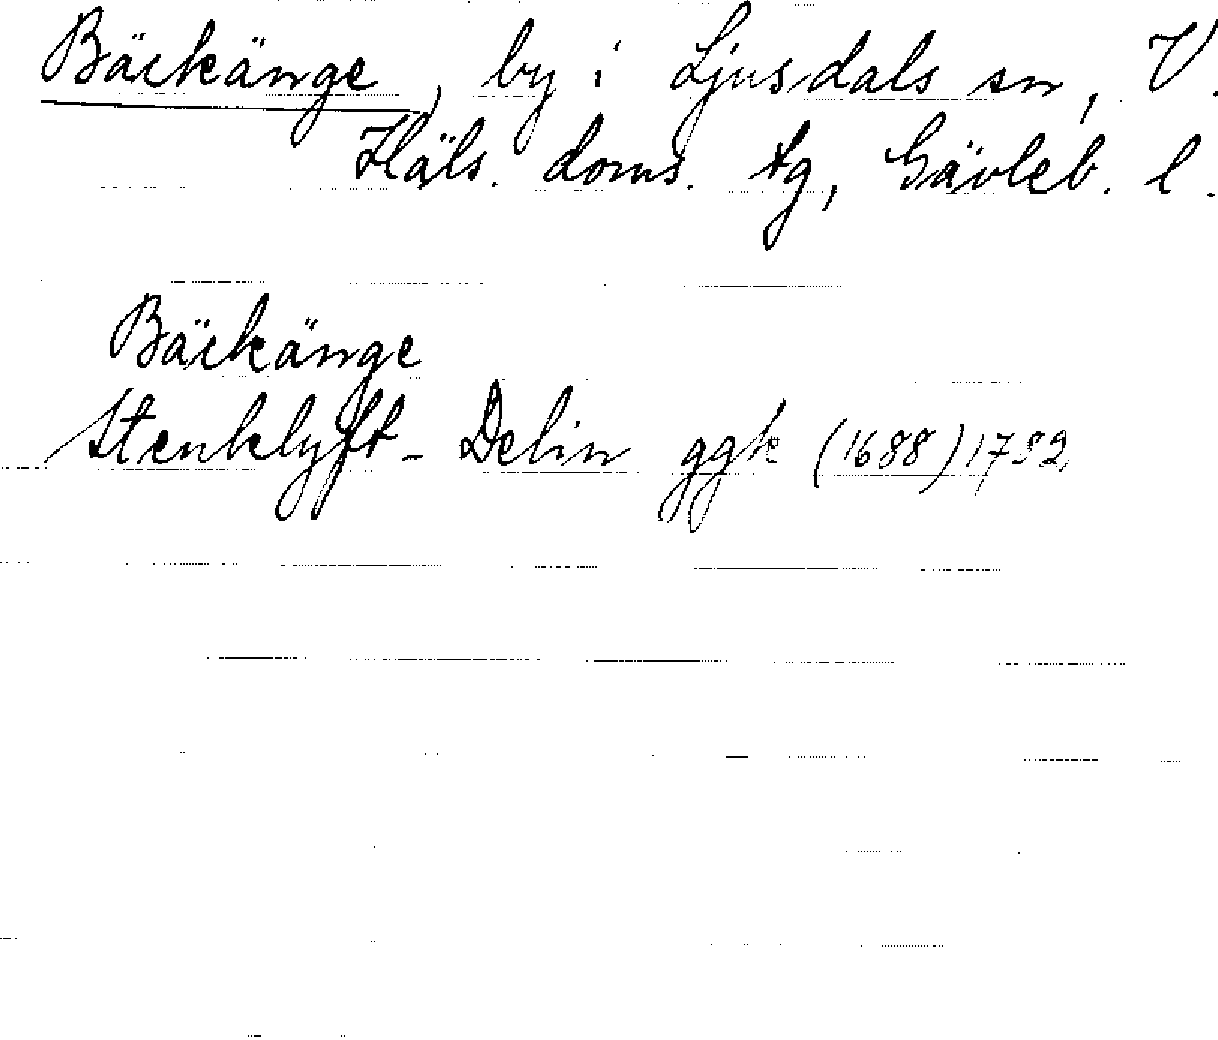 Bäckänge, by i Ljusdals sn, V.
Häls. doms. tg, Gävleb. l.
Bäckänge
Stenklyft- Delin ggk (1688) 1792